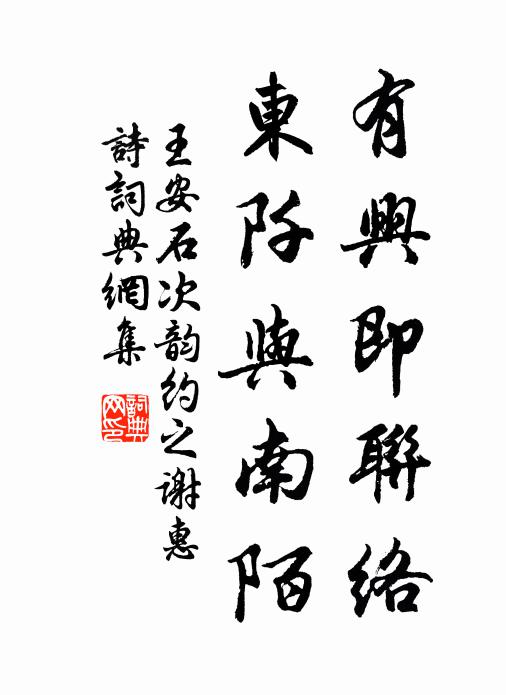 有興即聯絡
東阡與南陌
王安石次韵約之謝惠
詩詞典網集
詞典
网印